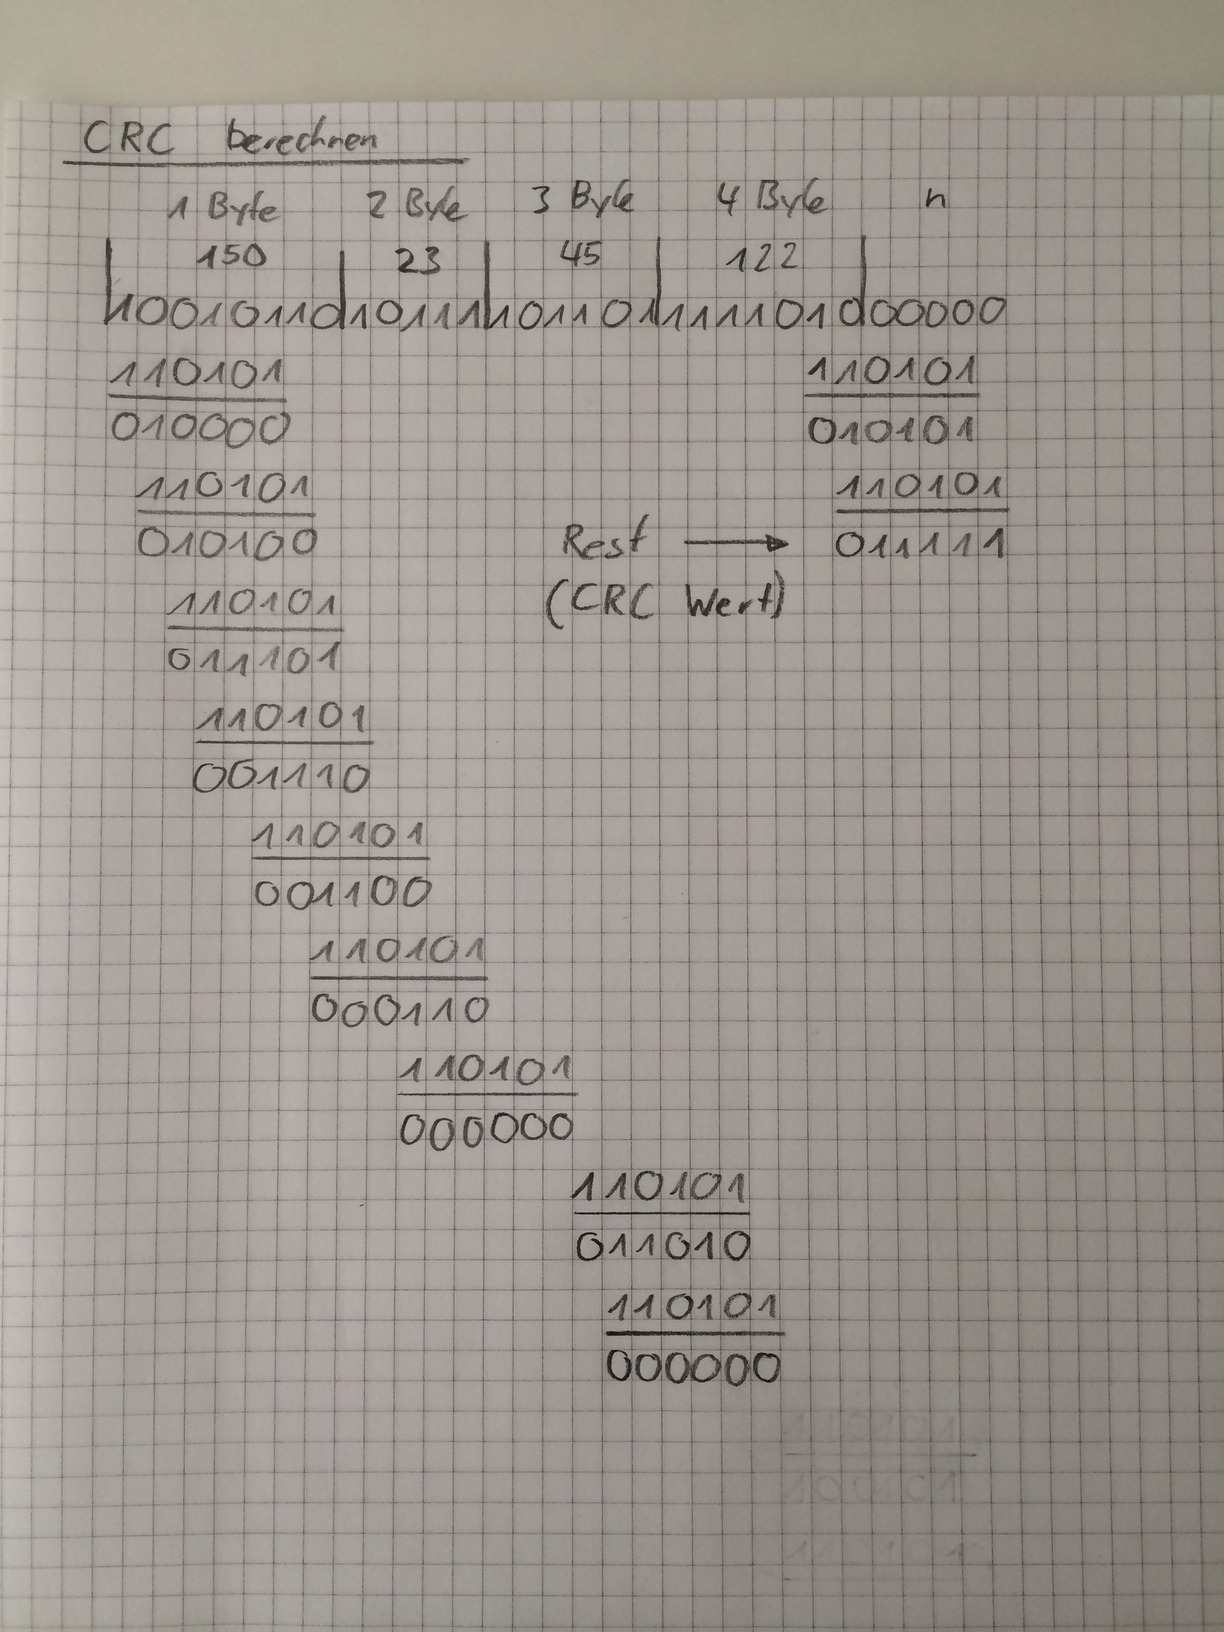 CRC berechnen
1 Byte 2 Byte 3 Byte 4 Byte n
150 23 45 122
10010110|10111|101101|1111010|00000
110101 110101
010000 010101
110101 110101
010100 Rest → 011111
110101 (CRC Wert)
011101
110101
001110
110101
001100
110101
000110
110101
000000
110101
011010
110101
000000